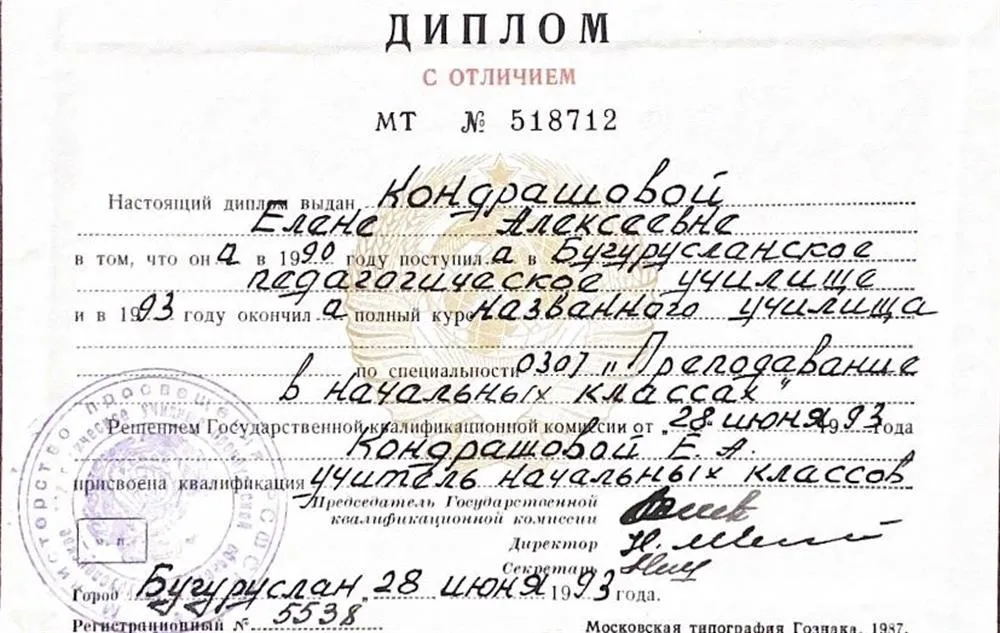 ДИПЛОМ
С ОТЛИЧИЕМ
МТ № 518712
Настоящий диплом выдан Кондрашовой
Елене Алексеевне
в том, что он а в 1990 году поступил а в Бугурусланское
педагогическое училище
и в 1993 году окончил а полный курс названного училища
по специальности 0307 "Преподавание
в начальных классах"
Решением Государственной квалификационной комиссии от „28 июня 1993 года
Кондрашовой Е. А.
присвоена квалификация учитель начальных классов
Председатель Государственной
квалификационной комиссии
Директор
Секретарь
Город Бугуруслан „28 июня 1993 года.
Регистрационный № 5538
Московская типография Гознака. 1987.
м. п.